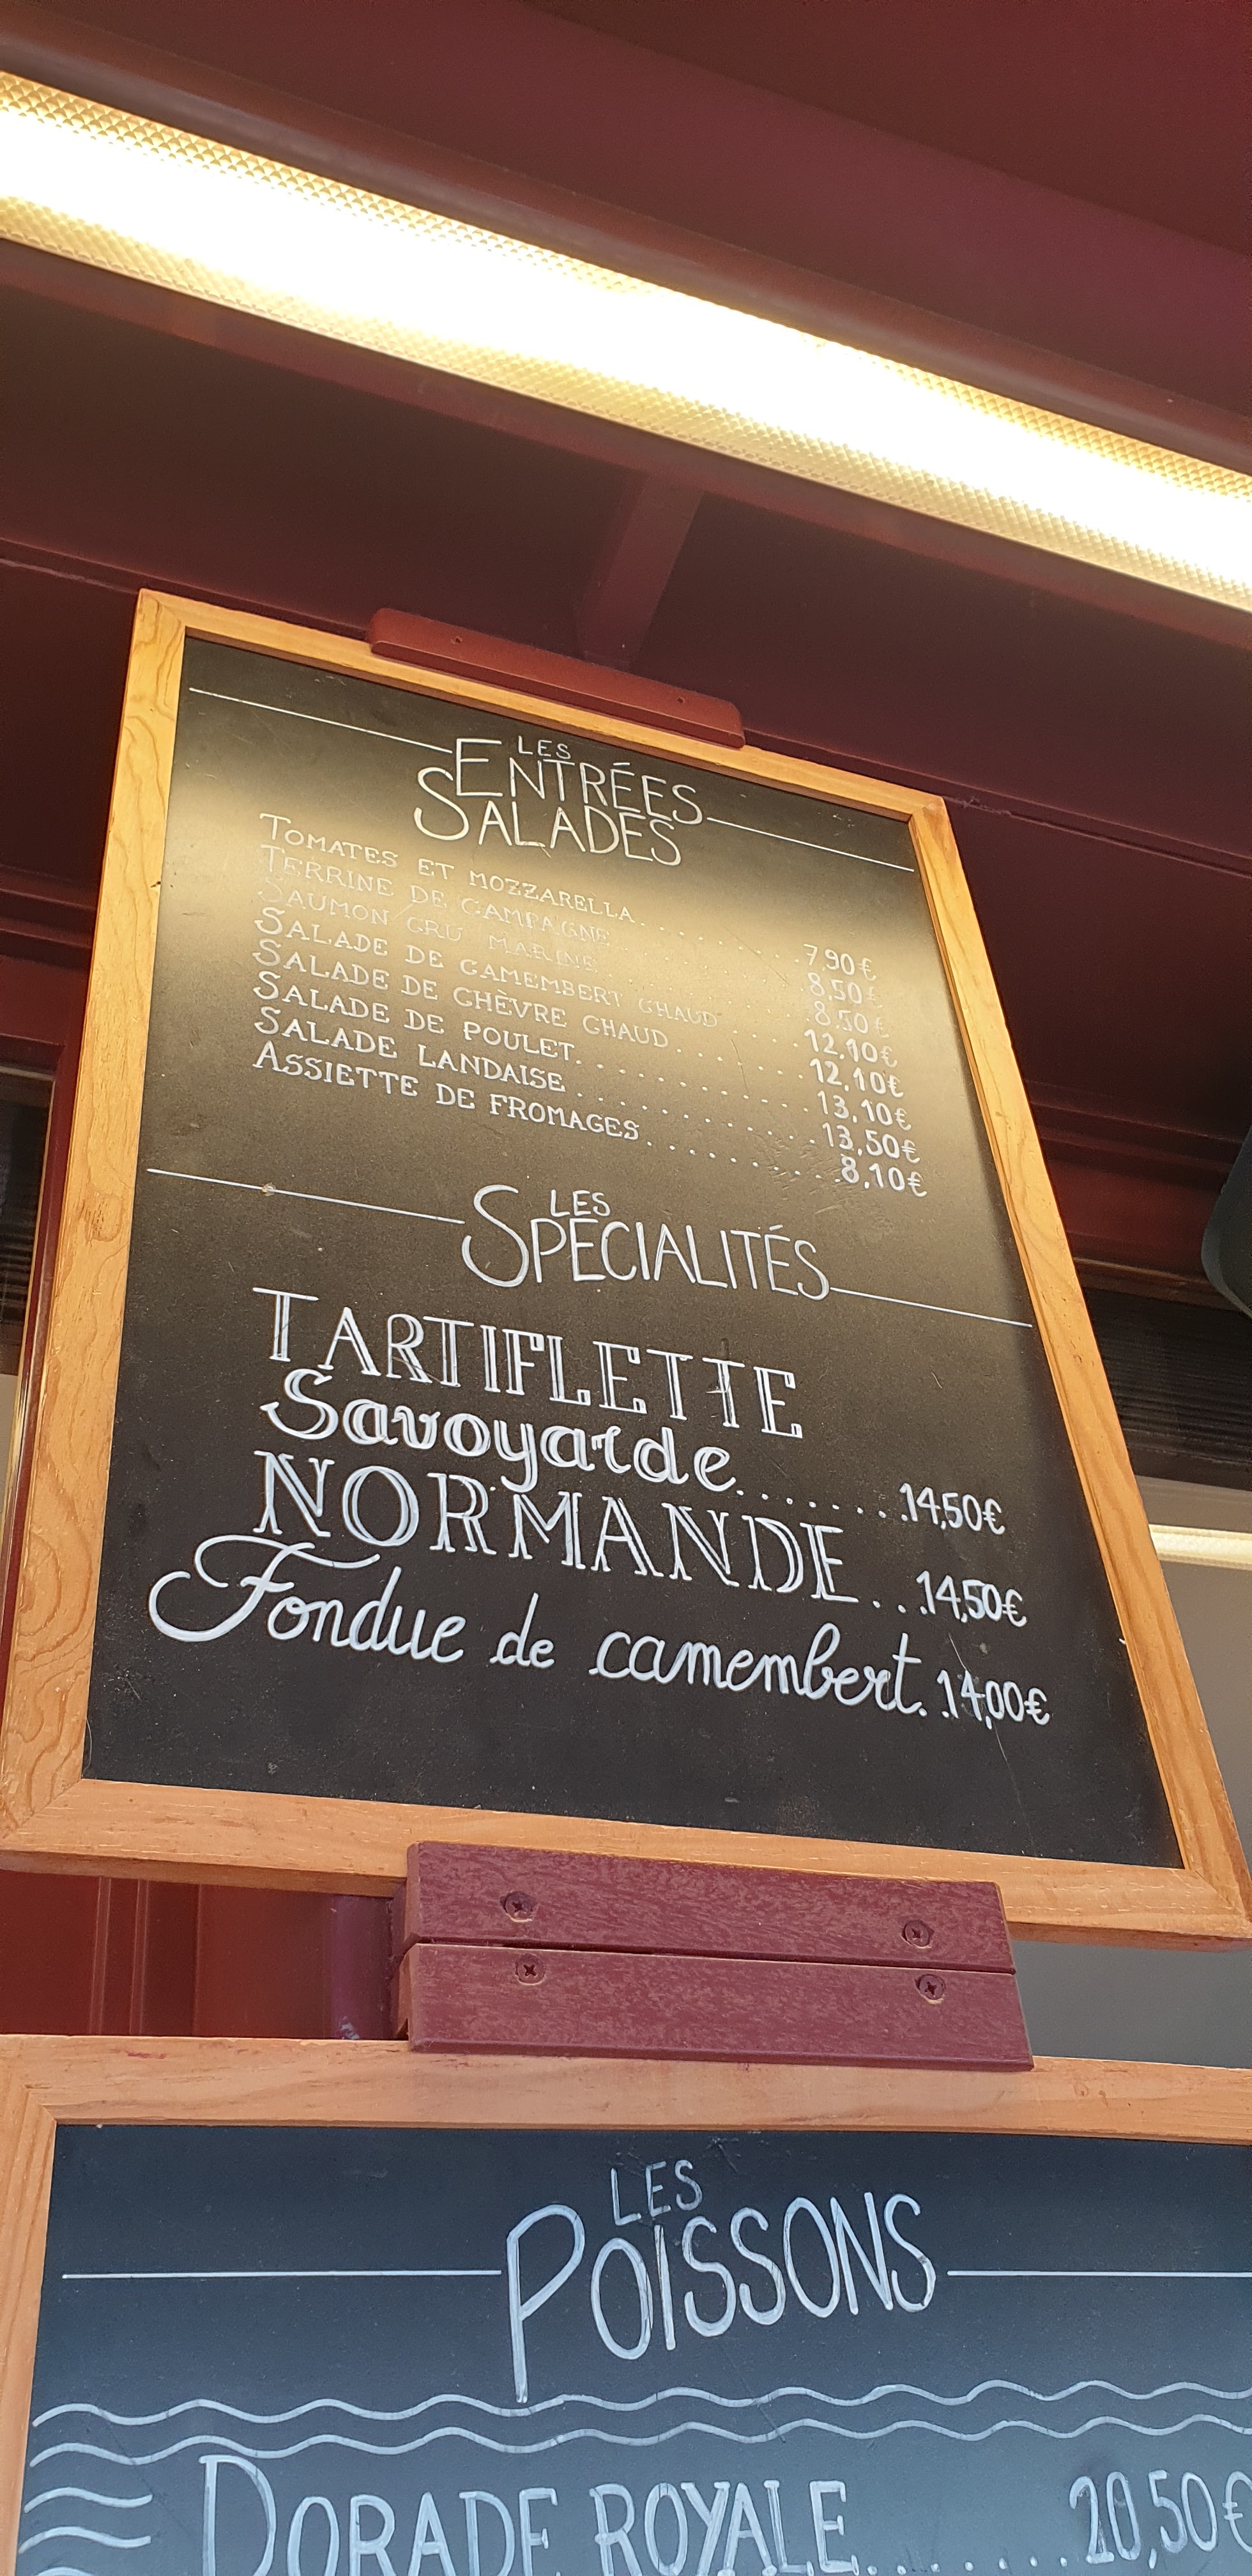 LES
ENTRÉES
SALADES
TOMATES ET MOZZARELLA. . . . . . . . . 7,90€
TERRINE DE CAMPAGNE . . . . . . . . . 8,50€
SAUMON CRU MARINÉ . . . . . . . . . 8,50€
SALADE DE CAMEMBERT CHAUD . . . . . 12,10€
SALADE DE CHÈVRE CHAUD . . . . . . . 12,10€
SALADE DE POULET. . . . . . . . . . . 13,10€
SALADE LANDAISE . . . . . . . . . . . 13,50€
ASSIETTE DE FROMAGES. . . . . . . . . 8,10€
LES
SPÉCIALITÉS
TARTIFLETTE
Savoyarde. . . . . . . . .14,50€
NORMANDE. . .14,50€
Fondue de camembert. .14,00€
LES
POISSONS
DORADE ROYALE. . . . . . . . 20,50€